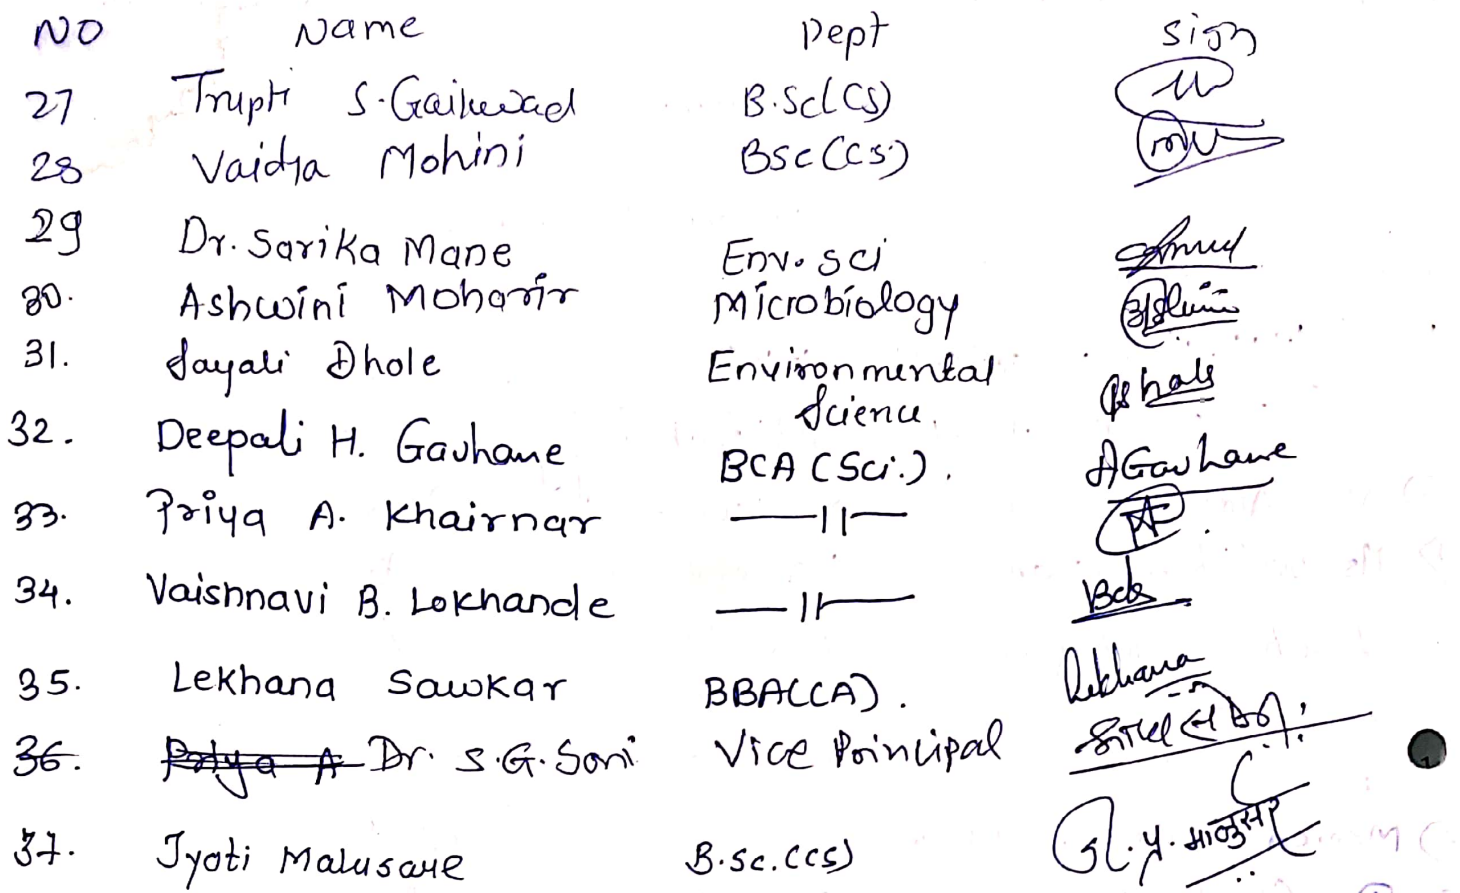 NO Name Dept Sign
27 Trupti S. Gaikwad B.Sc(CS)
28 Vaidya Mohini Bsc (CS)
29 Dr. Sarika Mane Env. sci
30. Ashwini Moharir Microbiology
31. Sayali Dhole Environmental
Science.
32. Deepali H. Gavhane BCA (Sci.). DGavhane
33. Priya A. Khairnar —||—
34. Vaishnavi B. Lokhande —||—
35. Lekhana Sawkar BBA(CA). Lekhana
36. Priya A Dr. S.G. Soni Vice Principal
37. Jyoti Malusare B.sc.(CS)